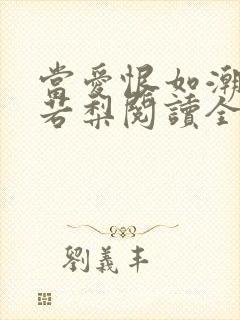 當愛恨如潮
若梨閱讀全
劉義丰